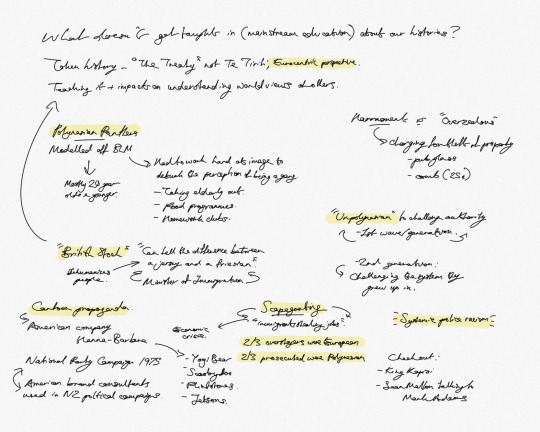 What doesn't get taught in (mainstream education) about our histories?
Token history - "The Treaty" not Te Tiriti, Eurocentric perspective.
Teaching it + impacts on understanding worldviews of others.
Polynesian Panthers
Modelled off BLM
Mostly 20 year
olds & younger.
Had to work hard at image to
debunk the perception of being a gang
- Taking elderly out
- Food programmes
- Homework clubs.
is "Overzealous"
charging for theft of property
- pub glass
- comb (25c)
"Unpolynesian" to challenge authority
- 1st wave/generation.
- 2nd generation:
Challenging the system they
grew up in.
"British Stock"
Dehumanizes
people.
"Can tell the difference between
a jersey and a friesian."
Minister of Immigration
Cartoon propaganda:
American company
Hanna-Barbera
National Party Campaign 1975
American brand consultants
used in NZ political campaigns
Economic
crisis.
- Yogi Bear
- Scooby doo
- Flintstones
- Jetsons.
Scapegoating
"immigrants stealing jobs"
2/3 overstayers were European
2/3 prosecuted were Polynesian
- Systemic police racism
Check out:
- King Kapisi